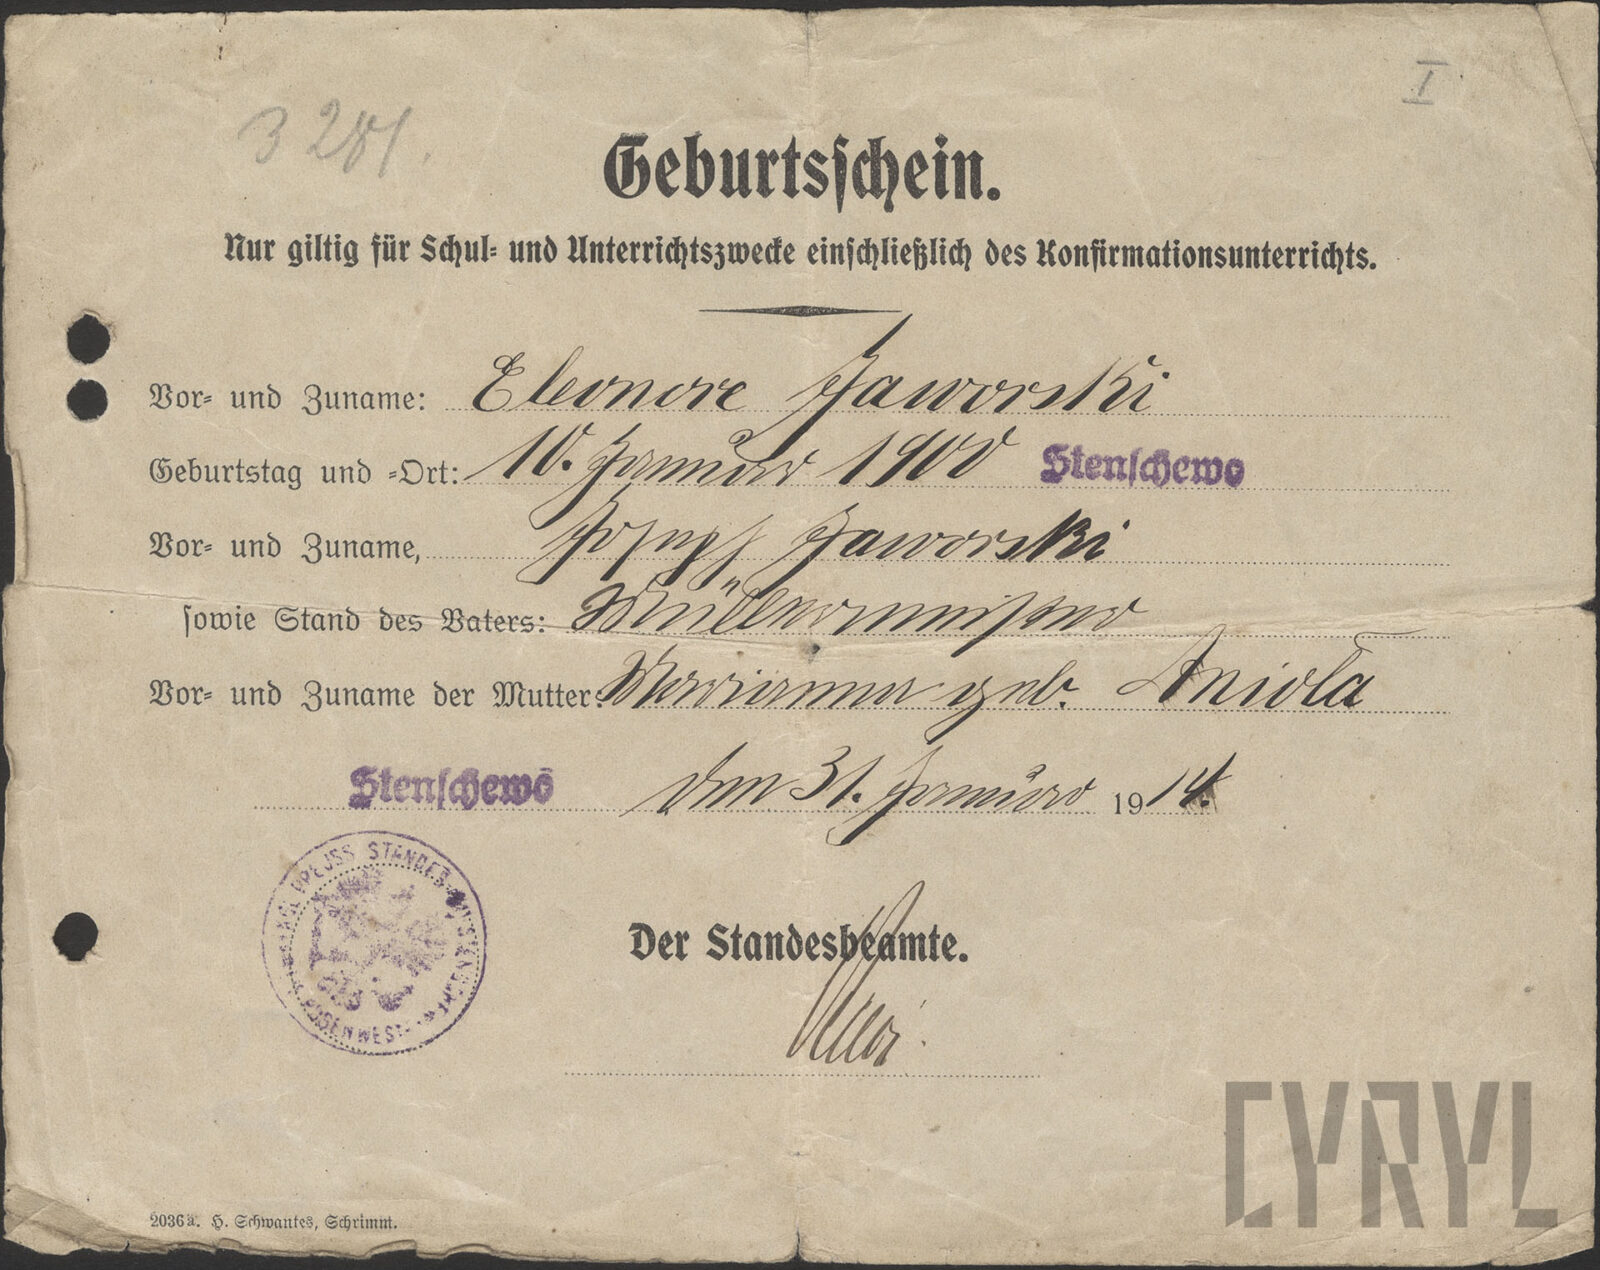 I
3281.
Geburtsschein.
Nur giltig für Schul- und Unterrichtszwecke einschließlich des Konfirmationsunterrichts.
Vor- und Zuname: Eleonore Jaworski
Geburtstag und -Ort: 10. Januar 1900 Stenschewo
Vor- und Zuname, Joseph Jaworski
sowie Stand des Vaters: Müllermeister
Vor- und Zuname der Mutter: Marianna geb. Anioła
Stenschewo den 31. Januar 1914.
KGL. PREUSS. STANDES
POSEN WEST
Der Standesbeamte.
2036a. H. Schwantes, Schrimm.
CYRYL